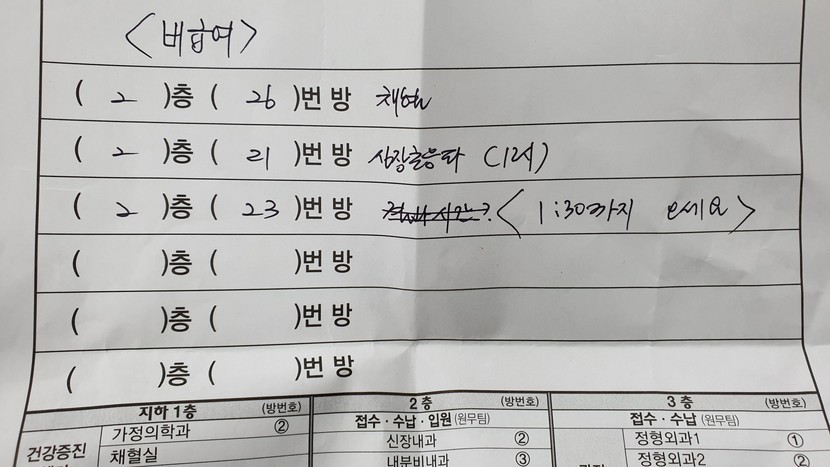 <비급여>
( 2 )층 ( 26 )번 방 채혈
( 2 )층 ( 21 )번 방 심장초음파 (12시)
( 2 )층 ( 23 )번 방 < 1:30까지 오세요 >
( )층 ( )번 방
( )층 ( )번 방
( )층 ( )번 방
지하 1층 (방번호) 2층 (방번호) 3층 (방번호)
건강증진 가정의학과 ② 접수·수납·입원 (원무팀) 접수·수납 (원무팀)
채혈실 신장내과 ② 정형외과1 ①
내분비내과 ③ 정형외과2 ②